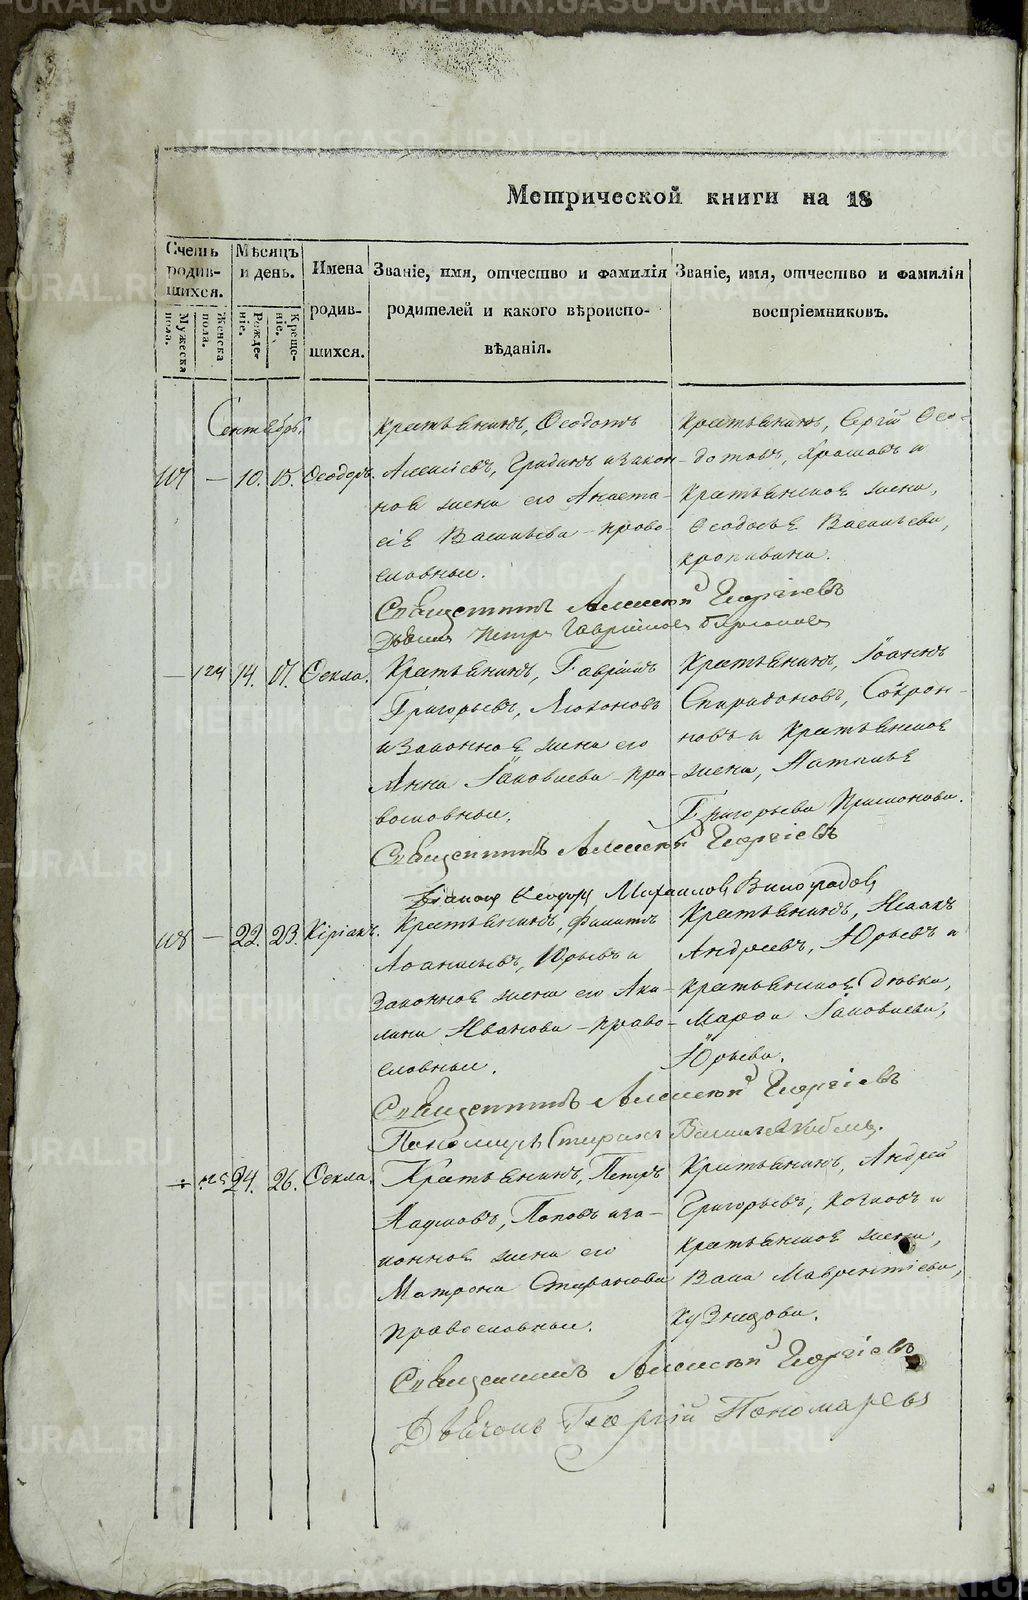 METRIKI.GASO-URAL.RU
Метрической книги на 18
Счетъ родившихся.
Мужеска пола.
Женска пола.
Мѣсяцъ и день.
Рожденіе.
Крещеніе.
Имена родившихся.
Званіе, имя, отчество и фамилія родителей и какого вѣроисповѣданія.
Званіе, имя, отчество и фамилія воспріемниковъ.
Сентябрь.
— 10. 15. Ѳеодоръ.
Крестьянинъ, Ѳеодотъ
Алексѣевъ, и закон-
ная жена его Анаста-
сія Васильева – право-
славные.
Крестьянинъ, Сергій Ѳео-
дотовъ, и
крестьянская жена,
Ѳеодосья Васильева,
Священникъ Алексѣй Георгіевъ
Дьячекъ Петръ Гавриловъ
— 124 14. 17. Ѳекла.
Крестьянинъ, Гавріилъ
Григорьевъ,
и законная жена его
Анна Іаковлева пра-
вославные.
Крестьянинъ, Іоаннъ
Спиридоновъ, Софрон-
новъ и крестьянская
жена, Наталья
Григорьева
Священникъ Алексѣй Георгіевъ
Діаконъ Ѳеодоръ Михаиловъ Виноградовъ
118 — 22. 23. Кіріакъ.
Крестьянинъ, Филиппъ
Аѳанасьевъ, Юрьевъ и
законная жена его Аку-
лина Иванова – право-
славные.
Крестьянинъ, Исаакъ
Андреевъ, Юрьевъ и
крестьянская дѣвка,
Марѳа Іаковлева,
Юрьева.
Священникъ Алексѣй Георгіевъ
Пономарь Стефанъ
125 24. 26. Ѳекла.
Крестьянинъ, Петръ
Наумовъ, Поповъ и за-
конная жена его
Матрона Стефанова
православные.
Крестьянинъ, Андрей
Григорьевъ, Козловъ и
крестьянская жена,
Лаврентіева,
Кузнецова.
Священникъ Алексѣй Георгіевъ
Дьячокъ Георгій Пономаревъ